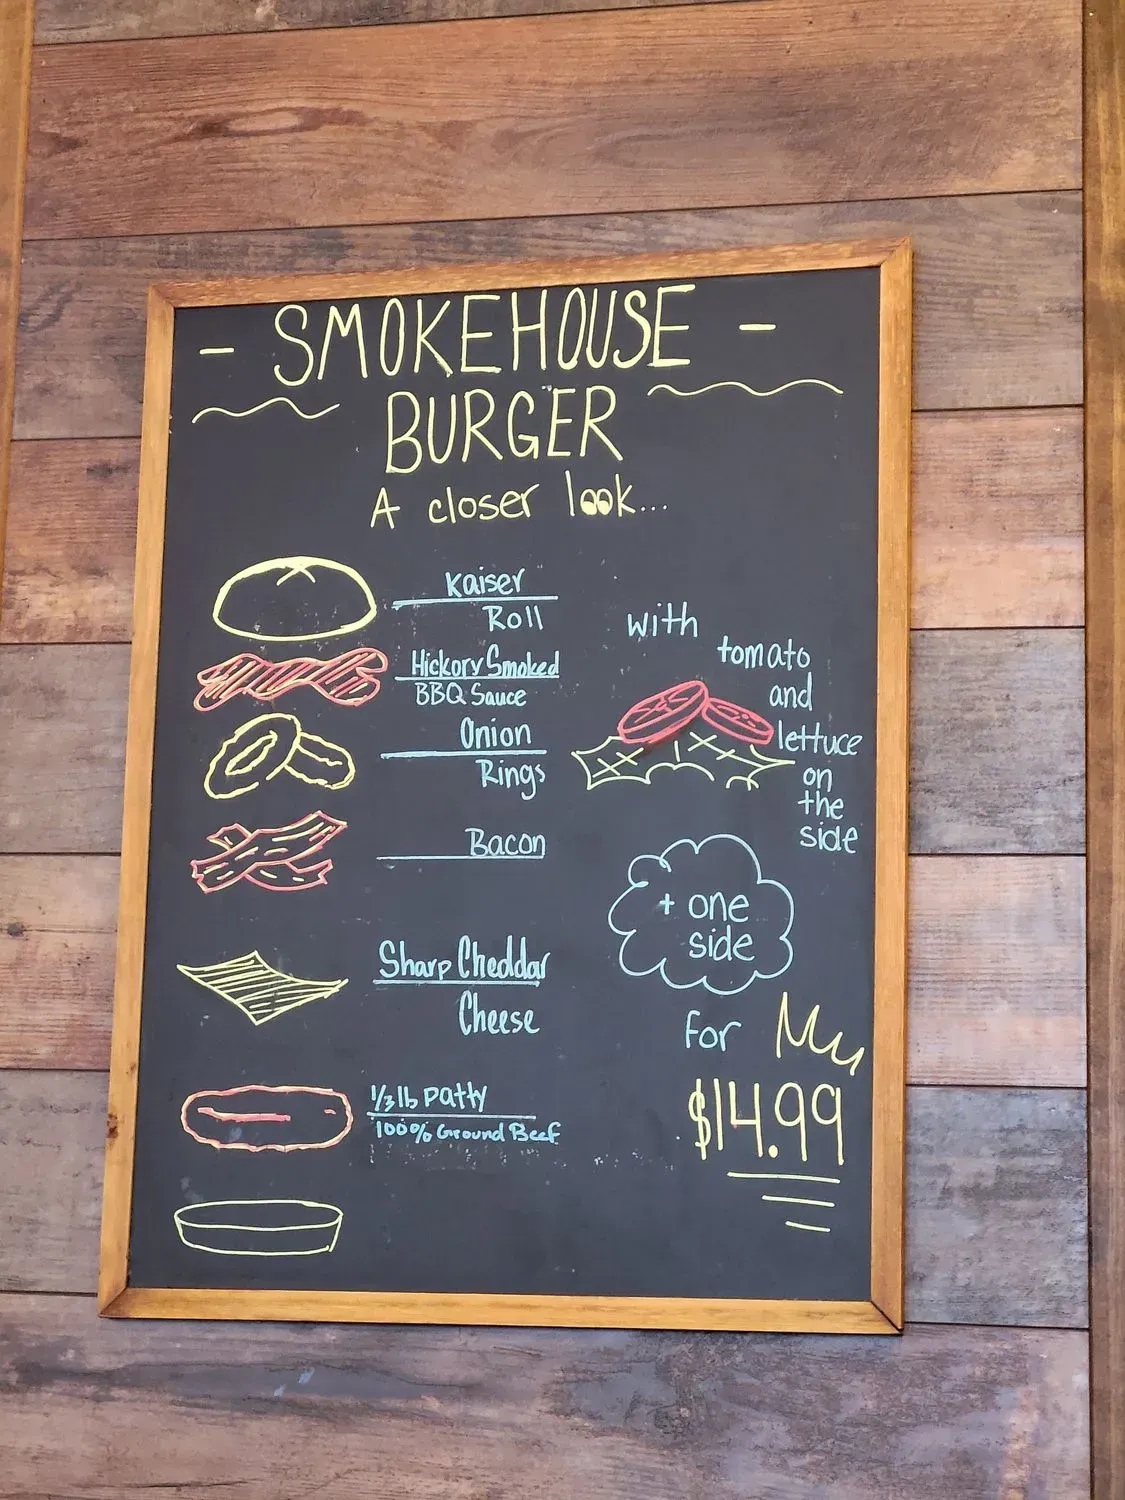 - SMOKEHOUSE -
BURGER
A closer look...
Kaiser
Roll
Hickory Smoked
BBQ Sauce
Onion
Rings
Bacon
Sharp Cheddar
Cheese
1/3 lb patty
100% Ground Beef
with
tomato
and
lettuce
on
the
side
+ one
side
For
$14.99